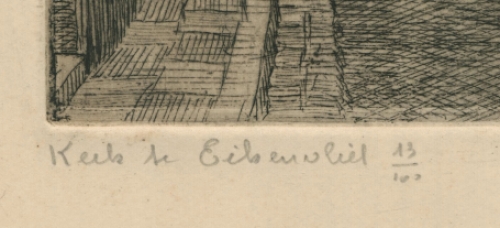 Kerk te Eikenvliet 13/100